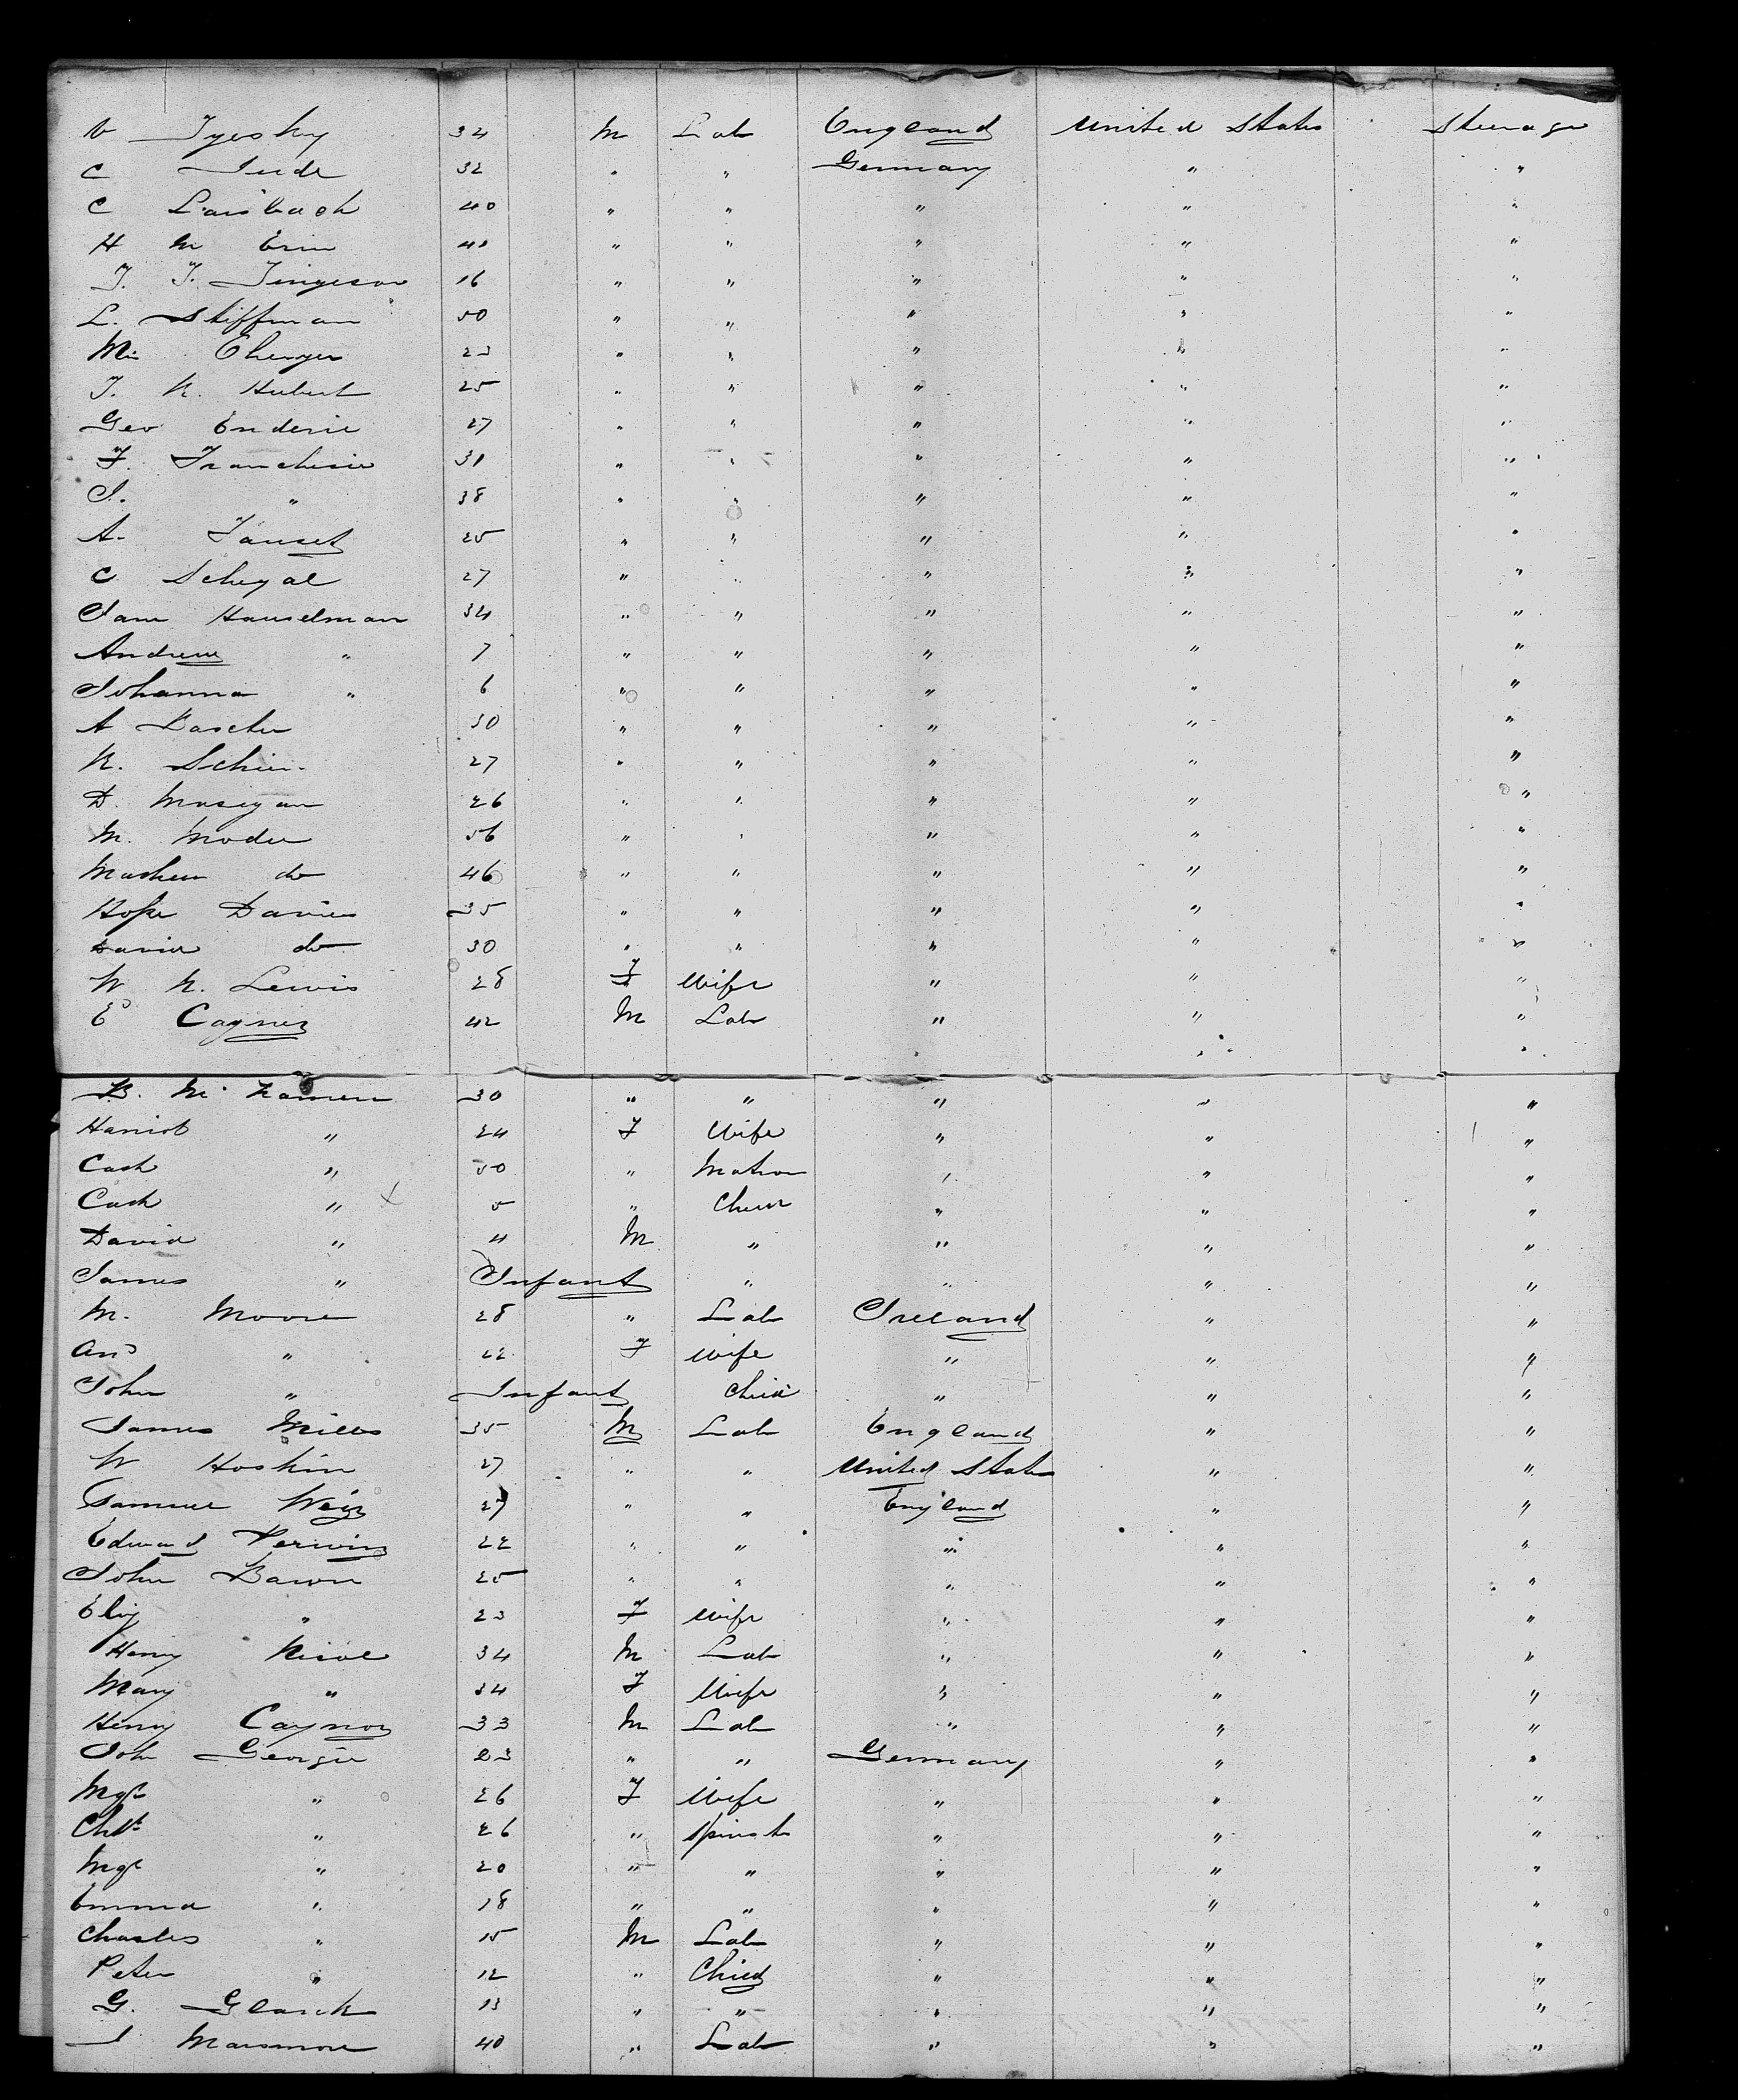 34 M Lab England United States Steerage
C 32 " " Germany " "
C Laisbach 40 " " " " "
H M Erin 40 " " " " "
T. T. 16 " " " " "
L. Stiffman 50 " " " " "
23 " " " " "
T. N. Hubert 25 " " " " "
Geo Enderie 27 " " " " "
F. Franchisie 31 " " " " "
J. " 38 " " " " "
A. 25 " " " " "
C 27 " " " " "
Sam Hauselman 34 " " " " "
Andrew " 7 " " " " "
Johanna " 6 " " " " "
A 30 " " " " "
N. 27 " " " " "
D. 26 " " " " "
M. Moder 56 " " " " "
do 46 " " " " "
Hope Davies 35 " " " " "
David do 30 " " " " "
W N. Lewis 28 F Wife " " "
E Cagney 42 M Lab " " "
B. 30 " " " " "
Harriot " 24 F Wife " " "
Cath " 50 " Matron " " "
Cath " 5 " Child " " "
David " 4 M " " " "
James " Infant " " " "
M. Moore 28 " Lab Ireland " "
Ann " 22 F Wife " " "
John " Infant Child " " "
James Mills 35 M Lab England " "
W Hoskin 27 " " United States " "
Samuel Weir 27 " " England " "
Edward 22 " " " " "
John Bawn 25 " " " " "
Eliz " 23 F Wife " " "
Henry Nicol 34 M Lab " " "
Mary " 34 F Wife " " "
Henry Caynor 33 M Lab " " "
John George 23 " " Germany " "
Mgt " 26 F Wife " " "
Chtt " 26 " Spinst " " "
Mgt " 20 " " " " "
Emma " 18 " " " " "
Charles " 15 M Lab " " "
Peter " 12 " Child " " "
G. Glanck 13 " " " " "
40 " Lab " " "